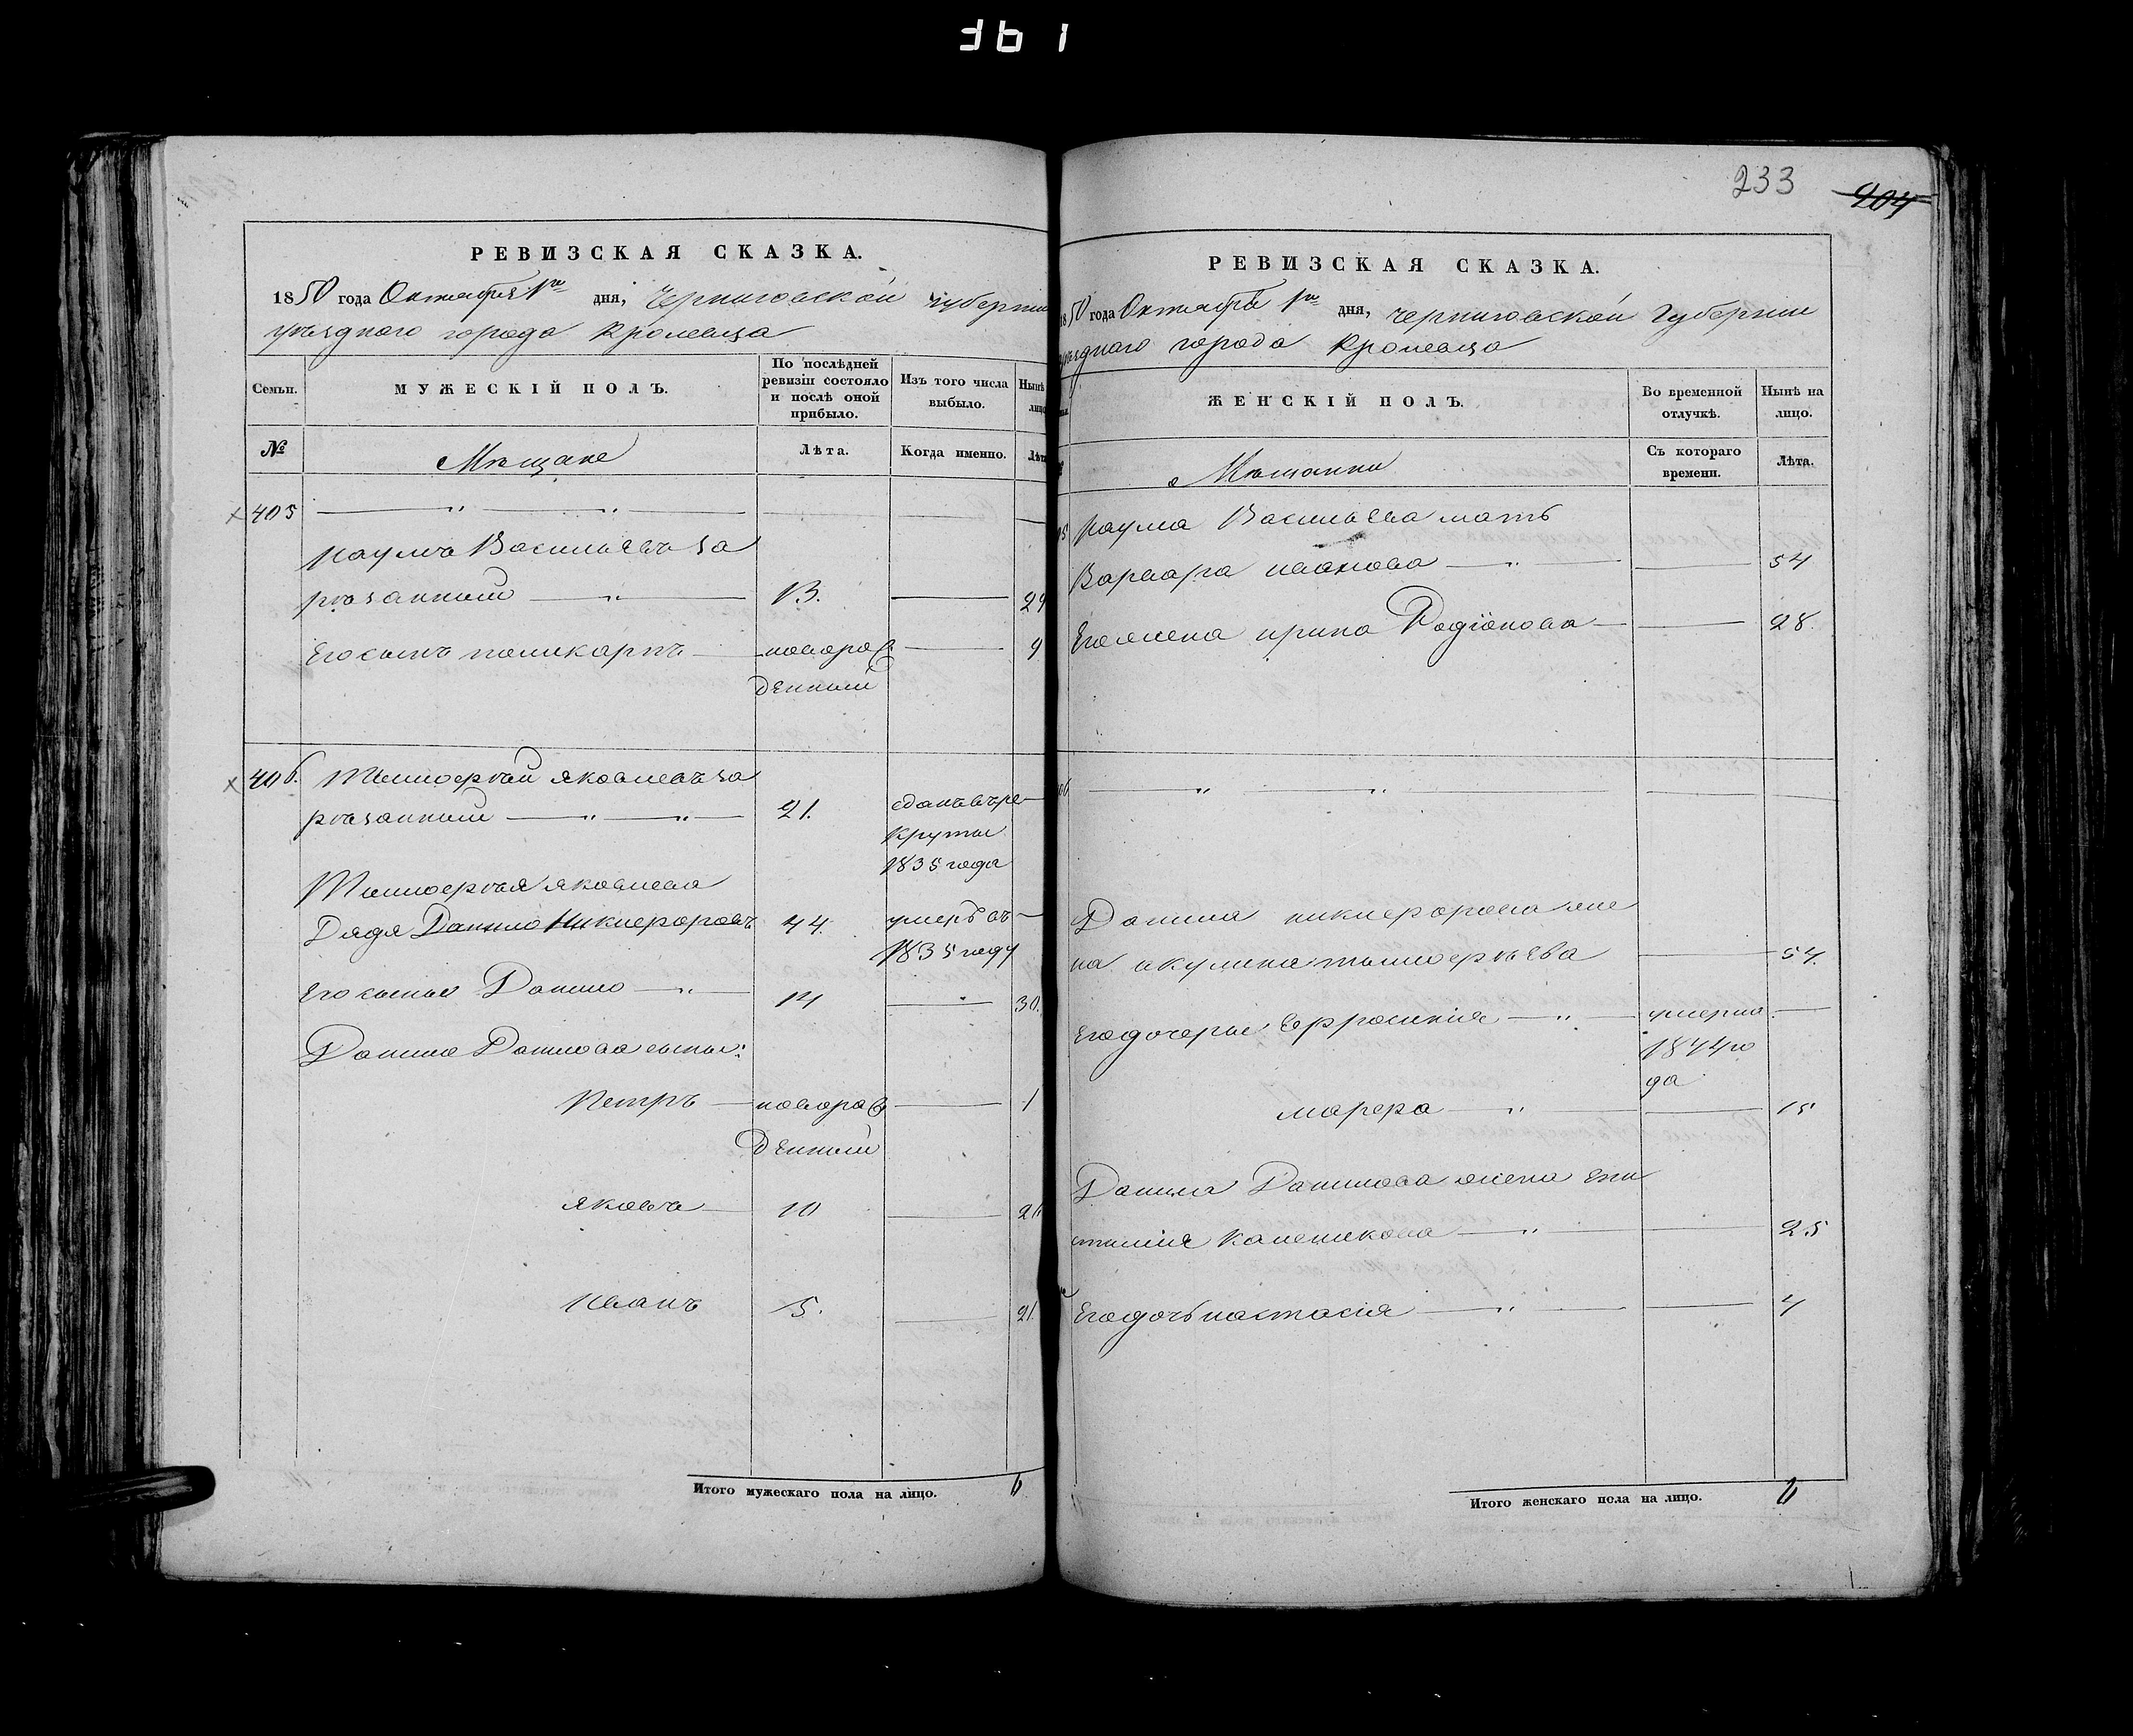 361
РЕВИЗСКАЯ СКАЗКА.
1850 года Октября 1го дня, Черниговской губернии
уѣзднаго города Кролевца
Семьи.
МУЖЕСКІЙ ПОЛЪ.
По послѣдней ревизіи состояло и послѣ оной прибыло.
Изъ того числа выбыло.
Нынѣ
лицо
№
Мѣщане
Лѣта.
Когда именно.
Лѣта
405
Наумъ Васильевъ за
рѣзанный 13. 29
Его сынъ Поликарпъ новорож 9
денный
406. Тимоѳей Яковлевъ за
рѣзанный 21. сданъ въ ре
круты
1835 года
Тимоѳея Яковлева
Дядя Данило Никифоровъ 44. умеръ въ
1835 году
Его сынья Данило 14 30.
Данила Данилова сынья:
Петръ новорож 1
денный
Яковъ 10 26
Иванъ 5. 21.
Итого мужескаго пола на лицо. 6
233
204
РЕВИЗСКАЯ СКАЗКА.
1850 года Октября 1го дня, Черниговской Губерніи
уѣзднаго города Кролевца
ЖЕНСКІЙ ПОЛЪ.
Во временной отлучкѣ.
Нынѣ на лицо.
Мѣщанки
Съ котораго времени.
Лѣта.
Наума Васильева мать
Варвара Иванова 54
Его жена Ирина Родіонова 28.
Данила Никифорова же
на Акулина Тимоѳеѣва 54.
Его дочеры Ефросинія умерла
1844 го
да
Марѳа 15
Данила Данилова жена Епи
стимія 25
Его дочь Настасія 4
Итого женскаго пола на лицо. 6